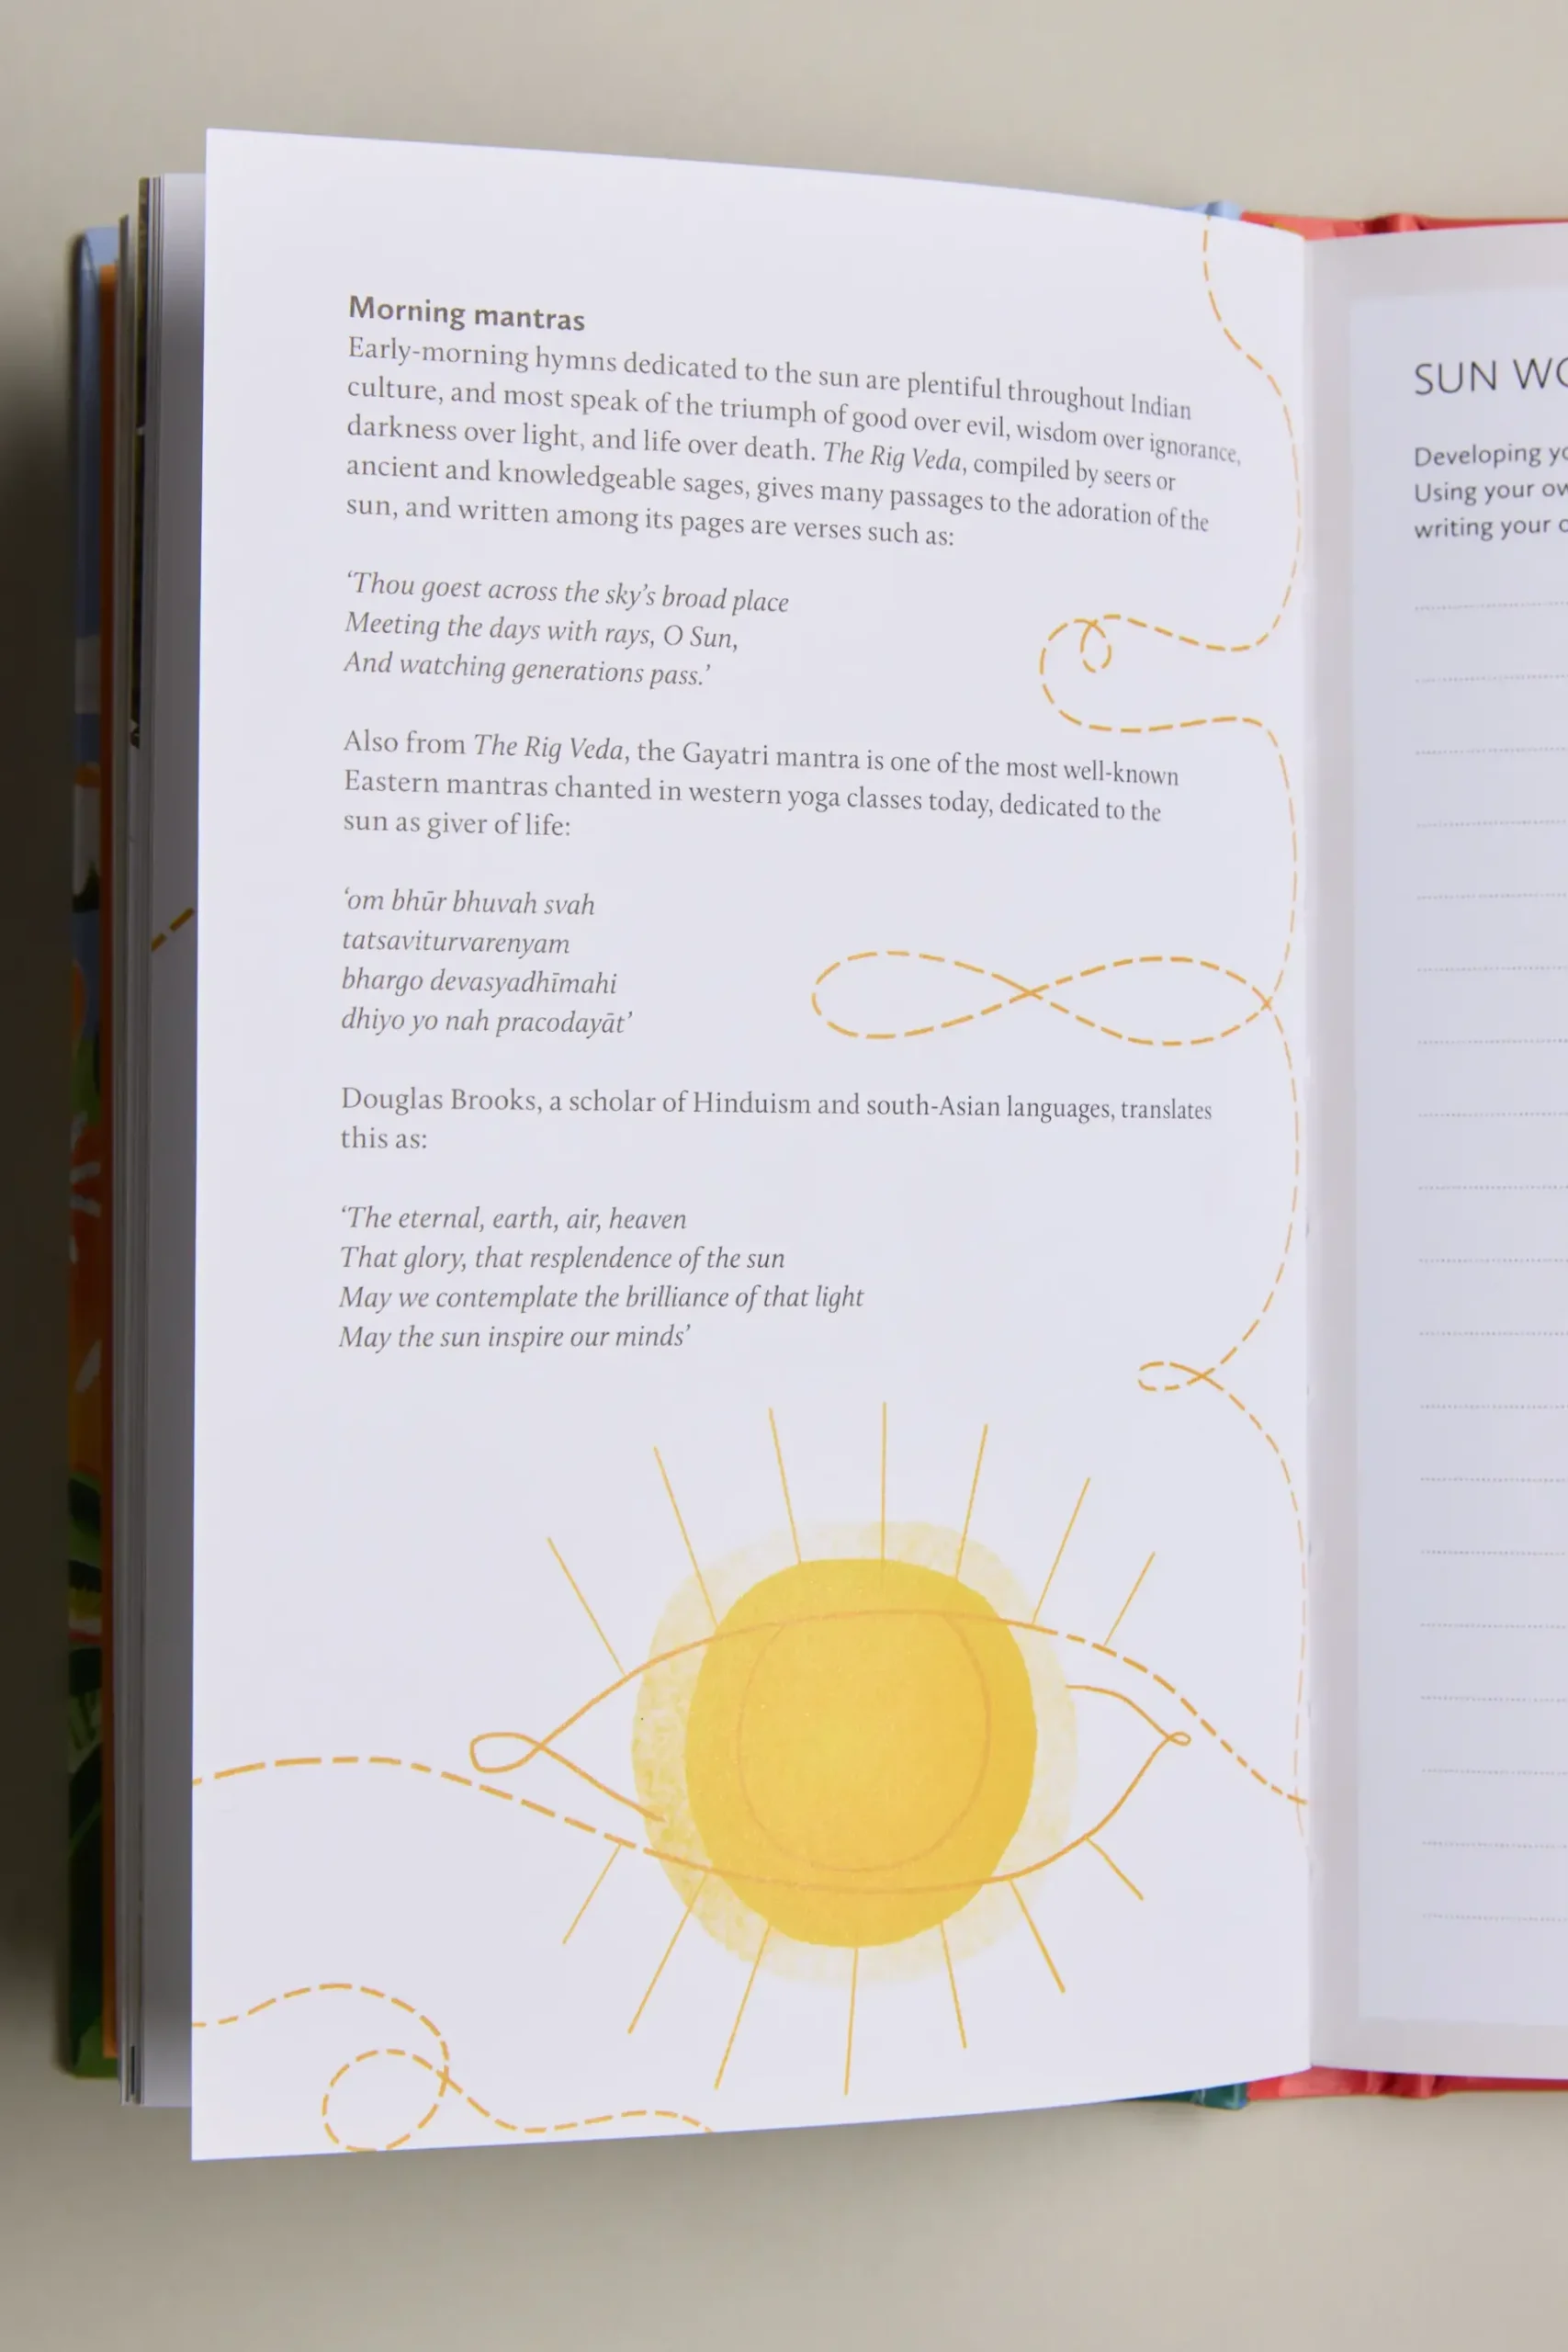 Morning mantras
Early-morning hymns dedicated to the sun are plentiful throughout Indian
culture, and most speak of the triumph of good over evil, wisdom over ignorance,
darkness over light, and life over death. The Rig Veda, compiled by seers or
ancient and knowledgeable sages, gives many passages to the adoration of the
sun, and written among its pages are verses such as:
‘Thou goest across the sky’s broad place
Meeting the days with rays, O Sun,
And watching generations pass.’
Also from The Rig Veda, the Gayatri mantra is one of the most well-known
Eastern mantras chanted in western yoga classes today, dedicated to the
sun as giver of life:
‘om bhūr bhuvah svah
tatsaviturvarenyam
bhargo devasyadhīmahi
dhiyo yo nah pracodayāt’
Douglas Brooks, a scholar of Hinduism and south-Asian languages, translates
this as:
‘The eternal, earth, air, heaven
That glory, that resplendence of the sun
May we contemplate the brilliance of that light
May the sun inspire our minds’
SUN
Developing
Using your
writing your